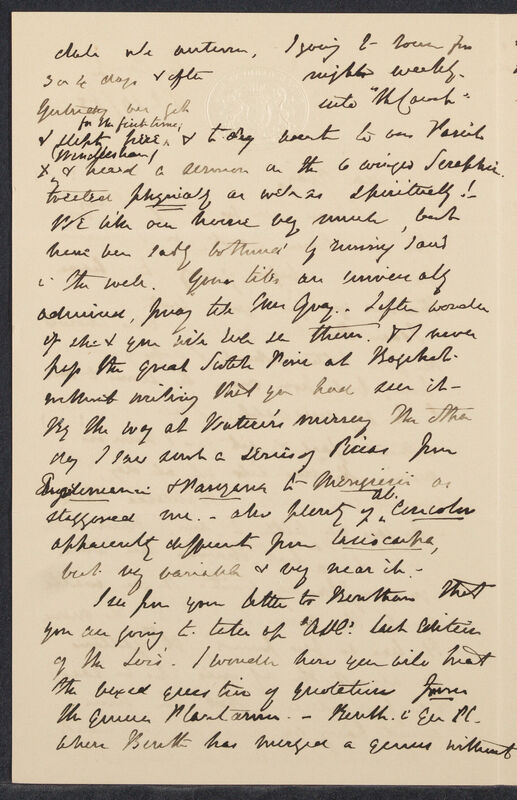 date we autumn, I going to town for
3 or 4 days & after nights weekly.
into "the Couch"
for the first time,
& slept here, & to day went to our Parish
(Windlesham)
X, & heard a sermon on the 6 winged Seraphim.
treated physically as well as spiritually!-
We like our house very much, but
have been sadly bothered by running sand
in the well. Your tiles are universally
admired, pray tell Mrs Gray. I often wonder
if she & you will ever see them. & I never
pass the great Scotch Pine at Bagshot
without wishing that you had seen it-
By the way at Veitch's nursery the other
day I saw such a series of Piceas from
& to Menziesii as
staggered me. - also plenty of Abi. Concolor
apparently different from lasiocarpa,
but very variable & very near it. -
I see from your letter to Bentham that
you are going to take up "ADC's" last Edition
of the Lois. I wonder how you will treat
the vexed question of quotation from
the Genera Plantarum. - Benth. in Gen Pl.
where Benth has merged a genus without